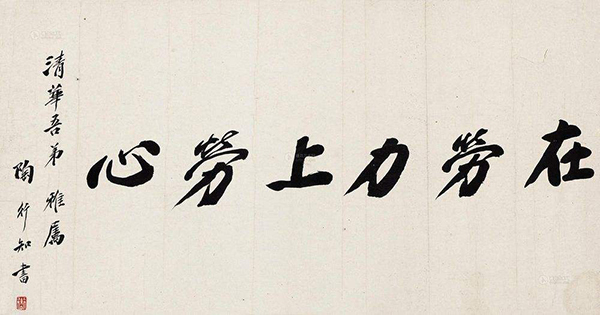 在劳力上劳心
清華吾弟 雅属
陶行知書